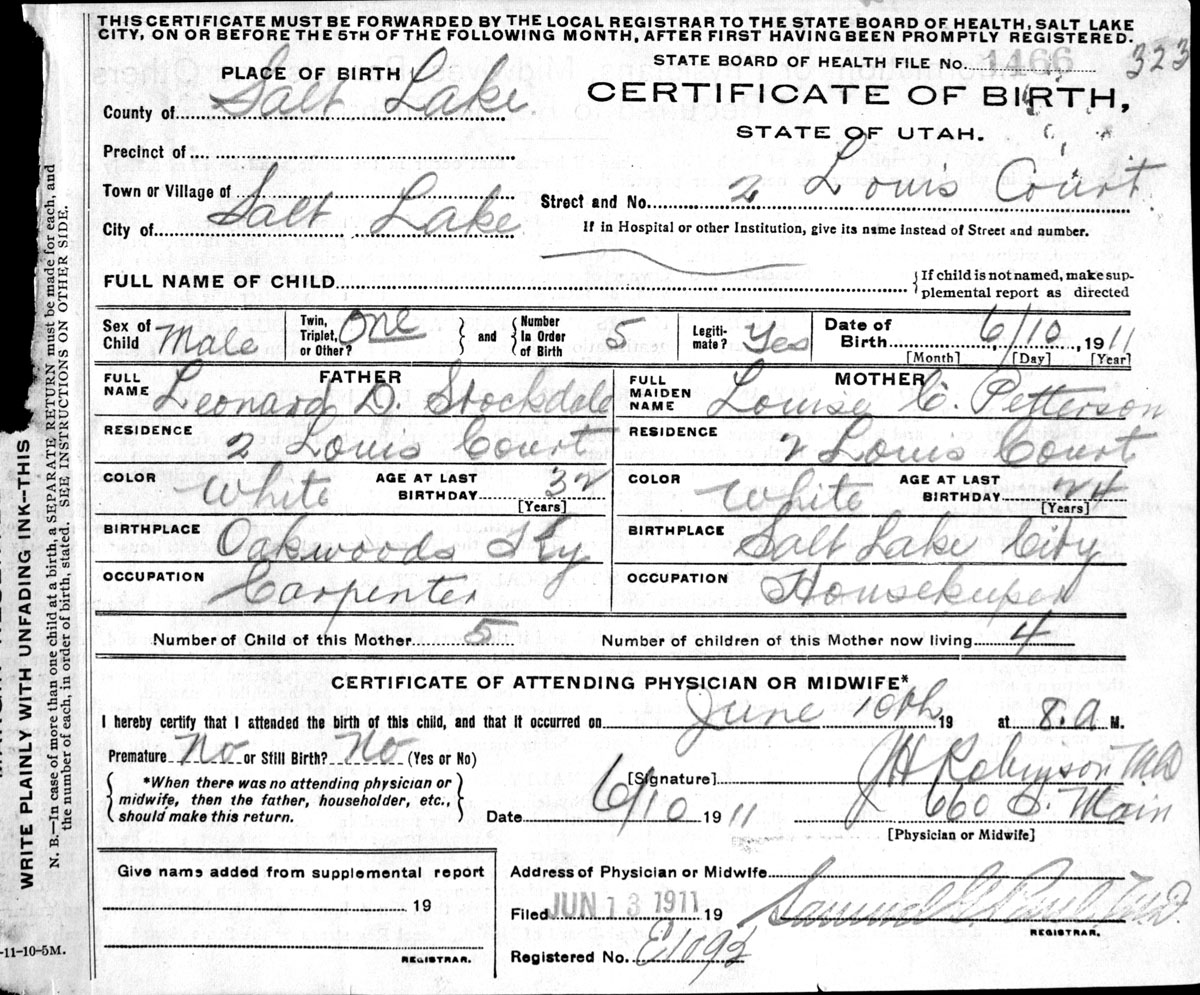 THIS CERTIFICATE MUST BE FORWARDED BY THE LOCAL REGISTRAR TO THE STATE BOARD OF HEALTH, SALT LAKE
CITY, ON OR BEFORE THE 5TH OF THE FOLLOWING MONTH, AFTER FIRST HAVING BEEN PROMPTLY REGISTERED.
STATE BOARD OF HEALTH FILE NO. 1466 323
PLACE OF BIRTH
CERTIFICATE OF BIRTH,
STATE OF UTAH.
County of Salt Lake
Precinct of
Town or Village of
Street and No. 2 Louis Court
City of Salt Lake
If in Hospital or other Institution, give its name instead of Street and number.
FULL NAME OF CHILD
If child is not named, make sup-
plemental report as directed
Sex of Child Male Twin, Triplet, or Other? One and Number In Order of Birth 5 Legiti- mate? Yes Date of Birth 6/10 1911
[Month] [Day] [Year]
FATHER MOTHER
FULL NAME Leonard D. Stockdale FULL MAIDEN NAME Louise C. Petterson
RESIDENCE 2 Louis Court RESIDENCE 2 Louis Court
COLOR White AGE AT LAST BIRTHDAY 32 [Years] COLOR White AGE AT LAST BIRTHDAY 24 [Years]
BIRTHPLACE Oakwoods Ky BIRTHPLACE Salt Lake City
OCCUPATION Carpenter OCCUPATION Housekeeper
Number of Child of this Mother 5 Number of children of this Mother now living 4
CERTIFICATE OF ATTENDING PHYSICIAN OR MIDWIFE*
I hereby certify that I attended the birth of this child, and that it occurred on June 10th, 19 at 8.a M.
Premature No or Still Birth? No (Yes or No)
*When there was no attending physician or
midwife, then the father, householder, etc.,
should make this return.
[Signature] J H Robinson MD
Date 6/10 1911 660 S. Main
[Physician or Midwife]
Give name added from supplemental report
19
REGISTRAR.
Address of Physician or Midwife
Filed JUN 13 1911 19 Samuel G. Paul
REGISTRAR.
Registered No. E1092
WRITE PLAINLY WITH UNFADING INK--THIS
N. B.—In case of more than one child at a birth, a SEPARATE RETURN must be made for each, and
the number of each, in order of birth, stated. SEE INSTRUCTIONS ON OTHER SIDE.
-11-10-5M.